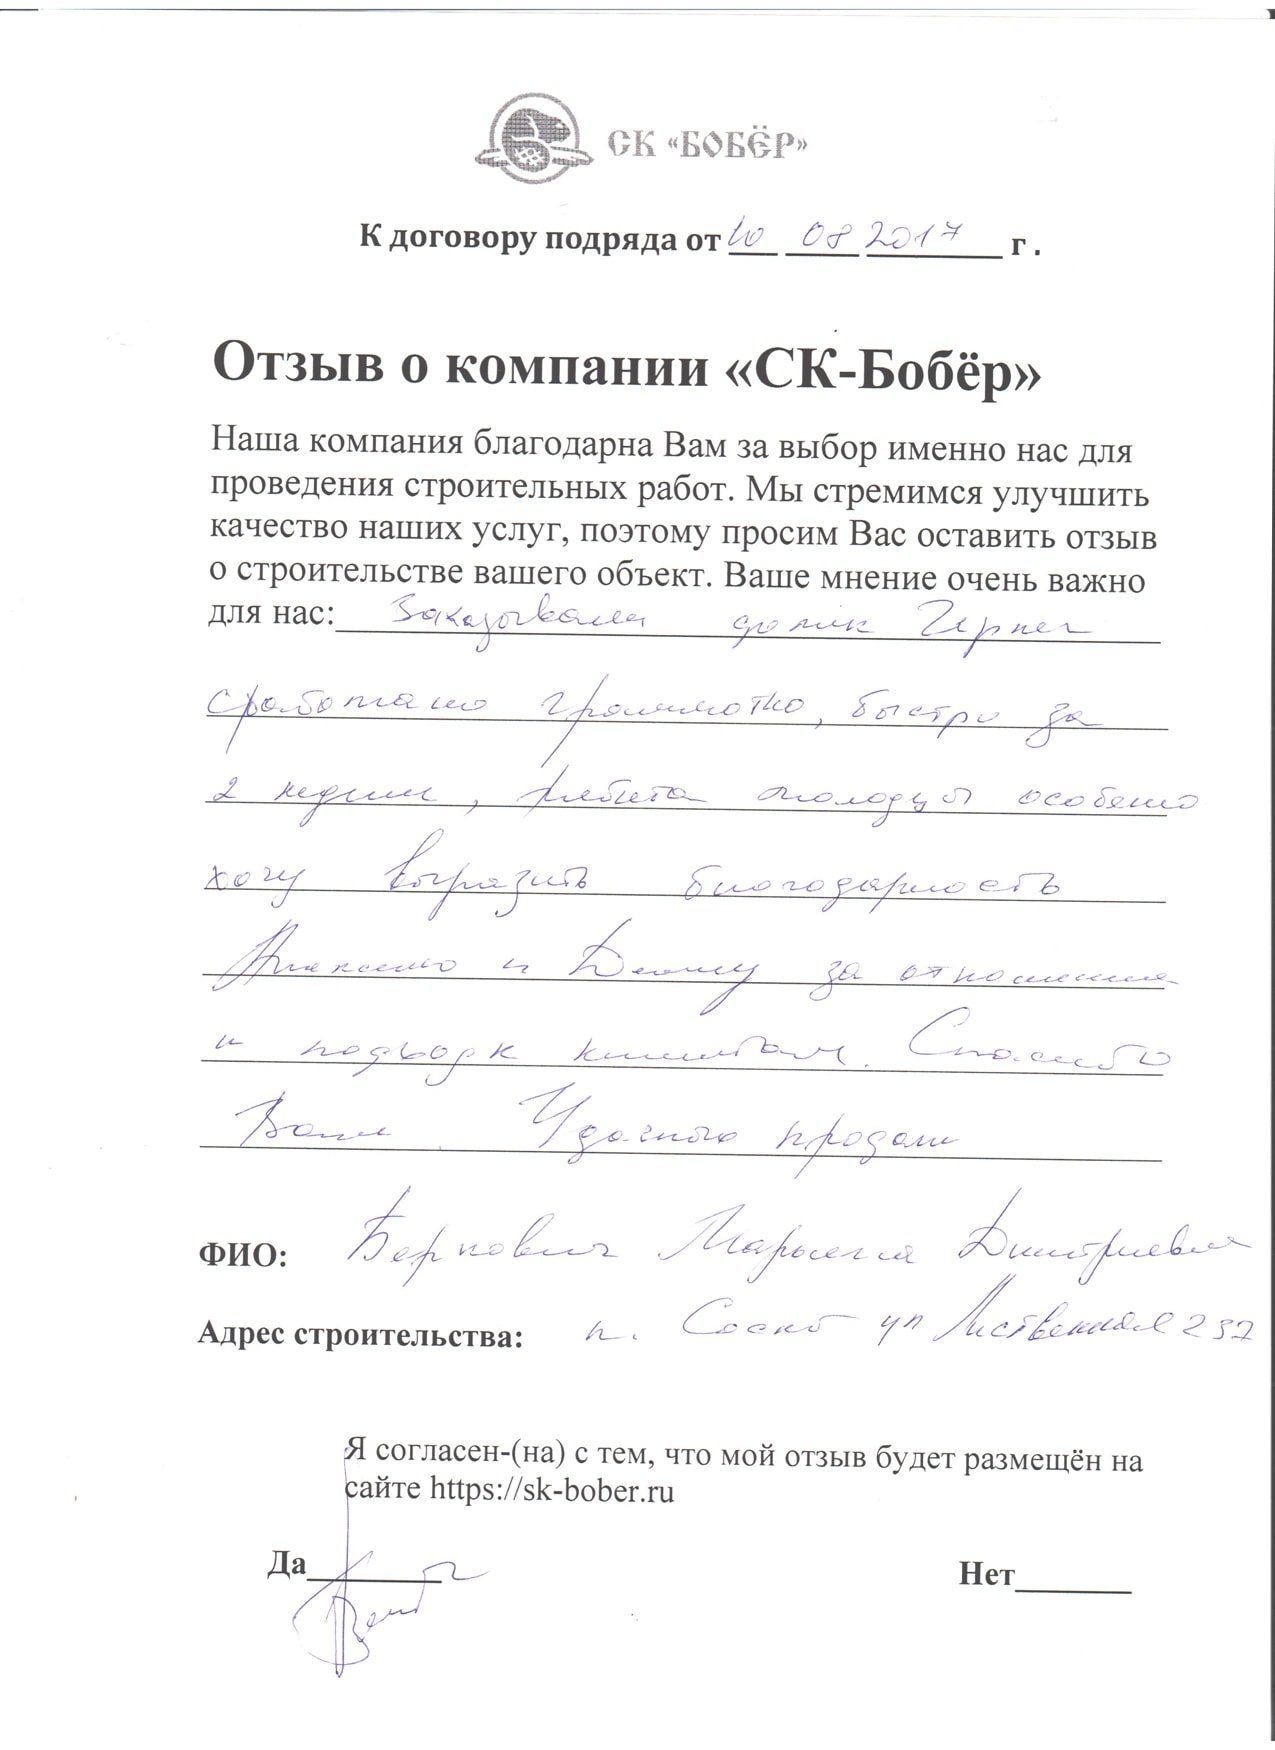 СК «БОБЁР»
К договору подряда от 10 08 2017 г.
Отзыв о компании «СК-Бобёр»
Наша компания благодарна Вам за выбор именно нас для
проведения строительных работ. Мы стремимся улучшить
качество наших услуг, поэтому просим Вас оставить отзыв
о строительстве вашего объект. Ваше мнение очень важно
для нас: Заказывали домик
сработано грамотно, быстро за
2 недели, ребята молодцы особено
хочу выразить благодарность
и за отношение
и подход к клиентам. Спасибо
Вам. Удачных продаж
ФИО: Дмитриевна
Адрес строительства: п. ул Лиственная 232
Я согласен-(на) с тем, что мой отзыв будет размещён на
сайте https://sk-bober.ru
Да Нет